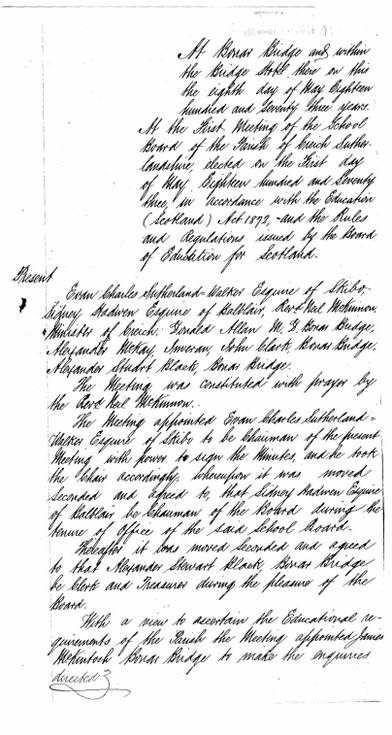 At Bonar Bridge and within
the Bridge Hotel there on this
the eighth day of May Eighteen
hundred and Seventy three years.
At the First Meeting of the School
Board of the Parish of Creich Suther-
landshire, elected on the First day
of May, Eighteen hundred and Seventy
three, in accordance with the Education
(Scotland) Act 1872, and the Rules
and Regulations issued by the Board
of Education for Scotland.
Present
Evan Charles Sutherland-Walker Esquire of Skibo,
Sidney Hadwen Esquire of Balblair, Revd. Neil McKinnon,
Minister of Creich, Gerald Allan M.D. Bonar Bridge,
Alexander McKay, Inveran, John Clark, Bonar Bridge,
Alexander Stuart Black, Bonar Bridge.
The Meeting was constituted with prayer by
the Revd. Neil McKinnon.
The Meeting appointed Evan Charles Sutherland=
Walker Esquire of Skibo to be Chairman of the present
Meeting with power to sign the Minutes, and he took
the Chair accordingly, whereupon it was moved
seconded and agreed to, that Sidney Hadwen Esquire
of Balblair be Chairman of the Board during the
tenure of Office of the said School Board.
Thereafter it was moved Seconded and agreed
to that Alexander Stewart Black Bonar Bridge
be Clerk and Treasurer during the pleasure of the
Board.
With a view to ascertain the Educational re-
quirements of the Parish the Meeting appointed James
McKintosh Bonar Bridge to make the enquiries
directed